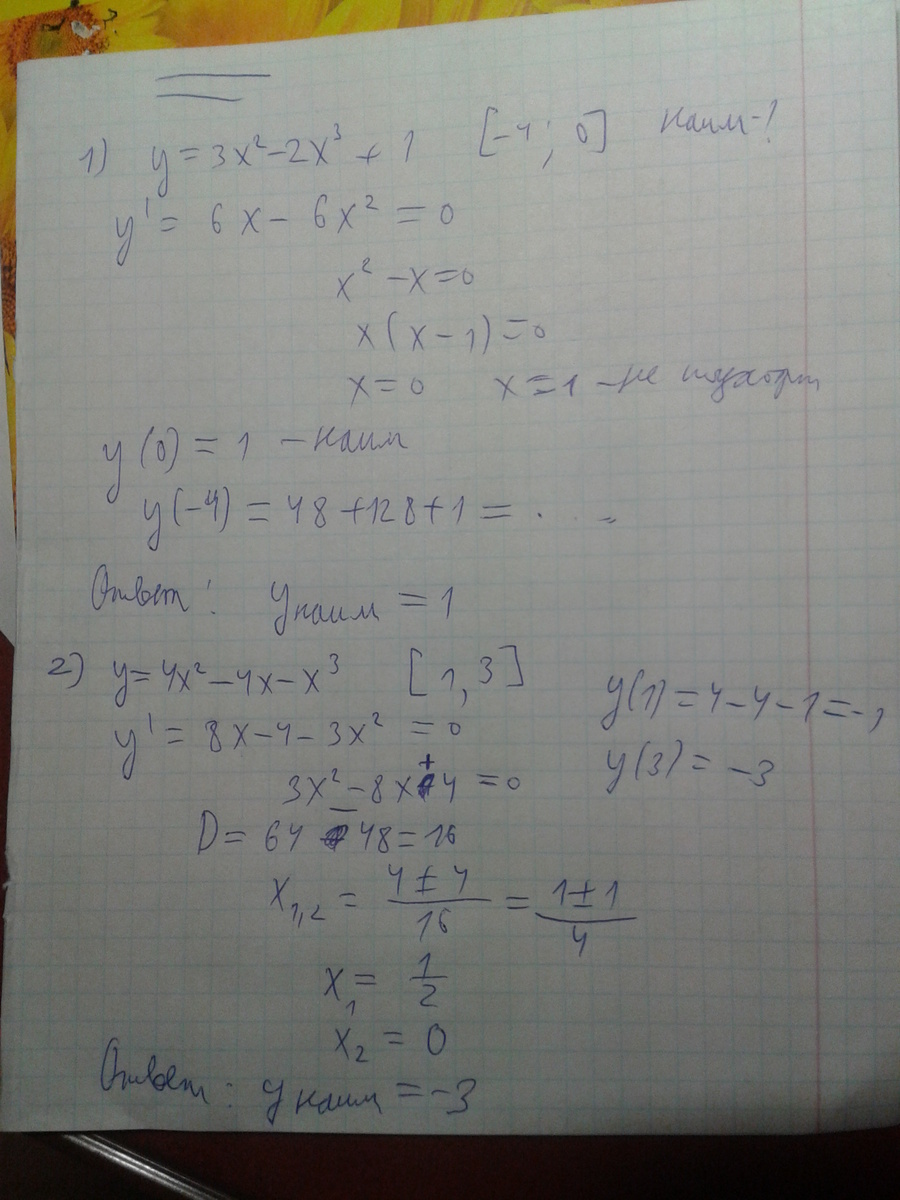 1) y = 3x² - 2x³ + 1 [-4; 0] наим-?
y' = 6x - 6x² = 0
x² - x = 0
x(x - 1) = 0
x = 0 x = 1 - не подходит
y(0) = 1 - наим
y(-4) = 48 + 128 + 1 = . . .
Ответ: y наим = 1
2) y = 4x² - 4x - x³ [1, 3]
y' = 8x - 4 - 3x² = 0
3x² - 8x + 4 = 0
D = 64 - 48 = 16
x₁,₂ = (4 ± 4)/16 = (1 ± 1)/4
x₁ = 1/2
x₂ = 0
Ответ: y наим = -3
y(1) = 4 - 4 - 1 = -1
y(3) = -3